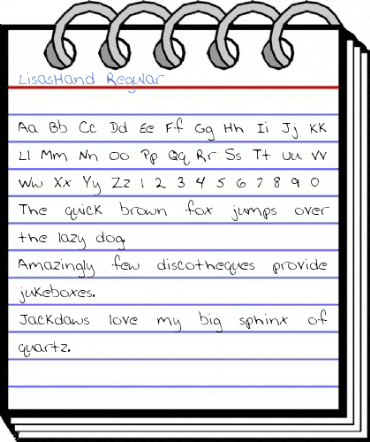 LisasHand Regular
Aa Bb Cc Dd Ee Ff Gg Hh Ii Jj KK
Ll Mm Nn Oo Pp Qq Rr Ss Tt uu vv
Ww Xx Yy Zz 1 2 3 4 5 6 7 8 9 0
The quick brown fox jumps over
the lazy dog.
Amazingly few discotheques provide
jukeboxes.
Jackdaws love my big sphinx of
quartz.